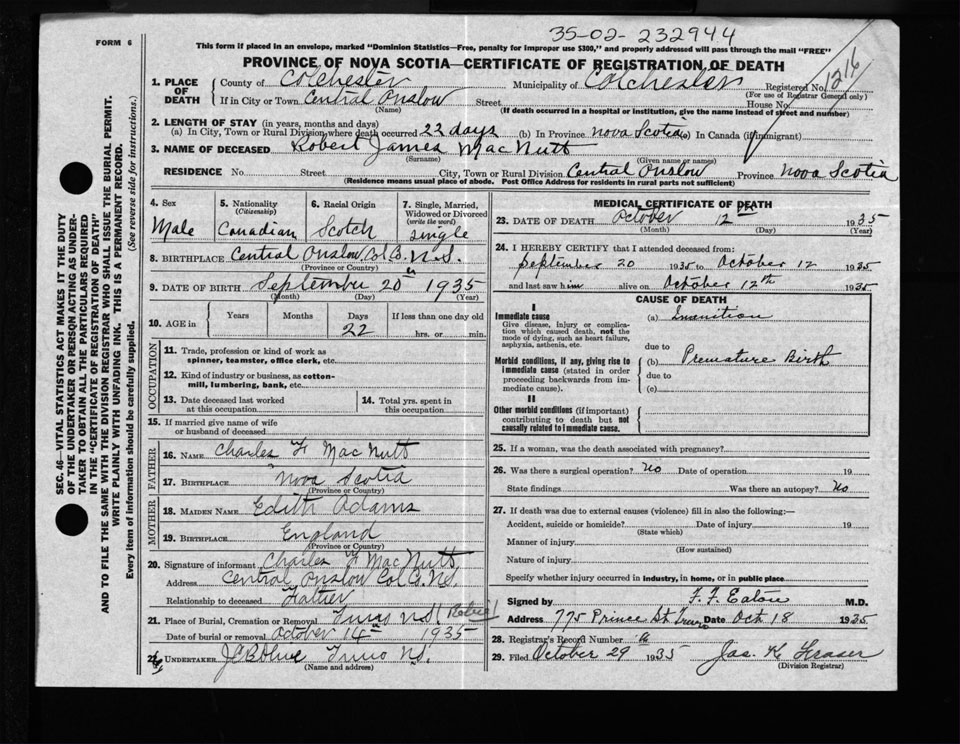 35-02-232944
FORM 6
This form if placed in an envelope, marked "Dominion Statistics—Free, penalty for improper use $300," and properly addressed will pass through the mail "FREE"
PROVINCE OF NOVA SCOTIA—CERTIFICATE OF REGISTRATION OF DEATH
1. PLACE OF DEATH County of Colchester Municipality of Colchester Registered No. 1216
(For use of Registrar General only)
If in City or Town Central Onslow Street House No.
(Name) (If death occurred in a hospital or institution, give the name instead of street and number)
2. LENGTH OF STAY (in years, months and days)
(a) In City, Town or Rural Division where death occurred 22 days (b) In Province Nova Scotia (c) In Canada (if immigrant)
3. NAME OF DECEASED Robert James MacNutt
(Surname) (Given name or names)
RESIDENCE No. Street City, Town or Rural Division Central Onslow Province Nova Scotia
(Residence means usual place of abode. Post Office Address for residents in rural parts not sufficient)
4. Sex Male
5. Nationality (Citizenship) Canadian
6. Racial Origin Scotch
7. Single, Married, Widowed or Divorced (write the word) Single
8. BIRTHPLACE Central Onslow Col Co. N.S.
(Province or Country)
9. DATE OF BIRTH September 20th 1935
(Month) (Day) (Year)
10. AGE in Years Months Days 22 If less than one day old hrs. or min.
OCCUPATION
11. Trade, profession or kind of work as spinner, teamster, office clerk, etc.
12. Kind of industry or business, as cotton-mill, lumbering, bank, etc.
13. Date deceased last worked at this occupation
14. Total yrs. spent in this occupation
15. If married give name of wife or husband of deceased
FATHER
16. NAME Charles F MacNutt
17. BIRTHPLACE Nova Scotia
(Province or Country)
MOTHER
18. MAIDEN NAME Edith Adams
19. BIRTHPLACE England
(Province or Country)
20. Signature of informant Charles F MacNutt
Address Central Onslow Col Co. N.S.
Relationship to deceased Father
21. Place of Burial, Cremation or Removal Truro N.S.
Date of burial or removal October 14th 1935
22. UNDERTAKER Truro N.S.
(Name and address)
MEDICAL CERTIFICATE OF DEATH
23. DATE OF DEATH October 12th 1935
(Month) (Day) (Year)
24. I HEREBY CERTIFY that I attended deceased from:
September 20 1935 to October 12 1935
and last saw him alive on October 12th 1935
CAUSE OF DEATH
I
Immediate cause
Give disease, injury or complication which caused death, not the mode of dying, such as heart failure, asphyxia, asthenia, etc.
(a) Inanition
due to
Morbid conditions, if any, giving rise to immediate cause (stated in order proceeding backwards from immediate cause).
(b) Premature Birth
due to
(c)
II
Other morbid conditions (if important) contributing to death but not causally related to immediate cause.
25. If a woman, was the death associated with pregnancy?
26. Was there a surgical operation? No Date of operation 19
State findings Was there an autopsy? No
27. If death was due to external causes (violence) fill in also the following:—
Accident, suicide or homicide? Date of injury 19
(State which)
Manner of injury
(How sustained)
Nature of injury
Specify whether injury occurred in industry, in home, or in public place
Signed by F. F. Eaton M.D.
Address 775 Prince St Truro Date Oct. 18 1935
28. Registrar's Record Number
29. Filed October 29 1935 Jas. K. Fraser
(Division Registrar)
SEC. 46—VITAL STATISTICS ACT MAKES IT THE DUTY
OF THE UNDERTAKER OR PERSON ACTING AS UNDER-
TAKER TO OBTAIN ALL THE PARTICULARS REQUIRED
IN THE "CERTIFICATE OF REGISTRATION OF DEATH"
AND TO FILE THE SAME WITH THE DIVISION REGISTRAR WHO SHALL ISSUE THE BURIAL PERMIT.
WRITE PLAINLY WITH UNFADING INK. THIS IS A PERMANENT RECORD.
Every item of information should be carefully supplied. (See reverse side for instructions.)